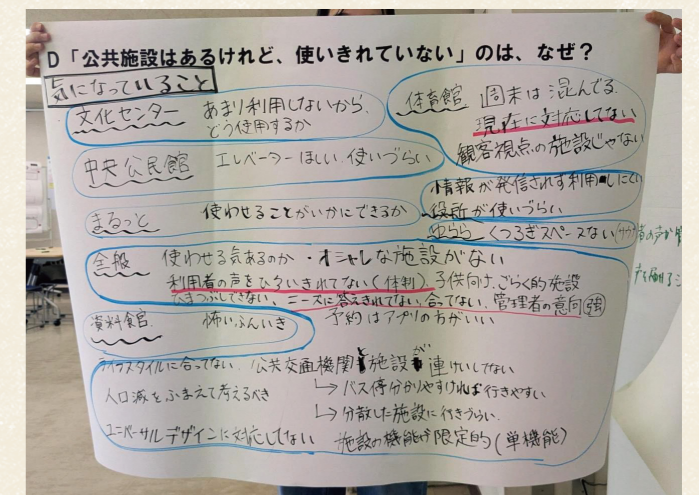 D「公共施設はあるけれど、使いきれていない」のは、なぜ？
気になっていること
文化センター あまり利用しないから、
どう使用するか
体育館 週末は混んでる。
現在に対応してない
観客視点の施設じゃない
中央公民館 エレベーターほしい、使いづらい
情報が発信されず利用しにくい
役所が使いづらい
まるっと 使わせることがいかにできるか
くつろぎスペースない
全般 使わせる気あるのか ・オシャレな施設がない
利用者の声をひろいきれてない(体制) 子供向け、ごらく的施設
ひまつぶしできない、ニーズに答えきれてない、合ってない、管理者の意向(強)
資料館 怖いふんいき 予約はアプリの方がいい
ライフスタイルに合ってない 公共交通機関 施設が連けいしてない
人口減をふまえて考えるべき └→ バス停分かりやすければ行きやすい
└→ 分散した施設に行きづらい。
ユニバーサルデザインに対応してない 施設の機能が限定的(単機能)